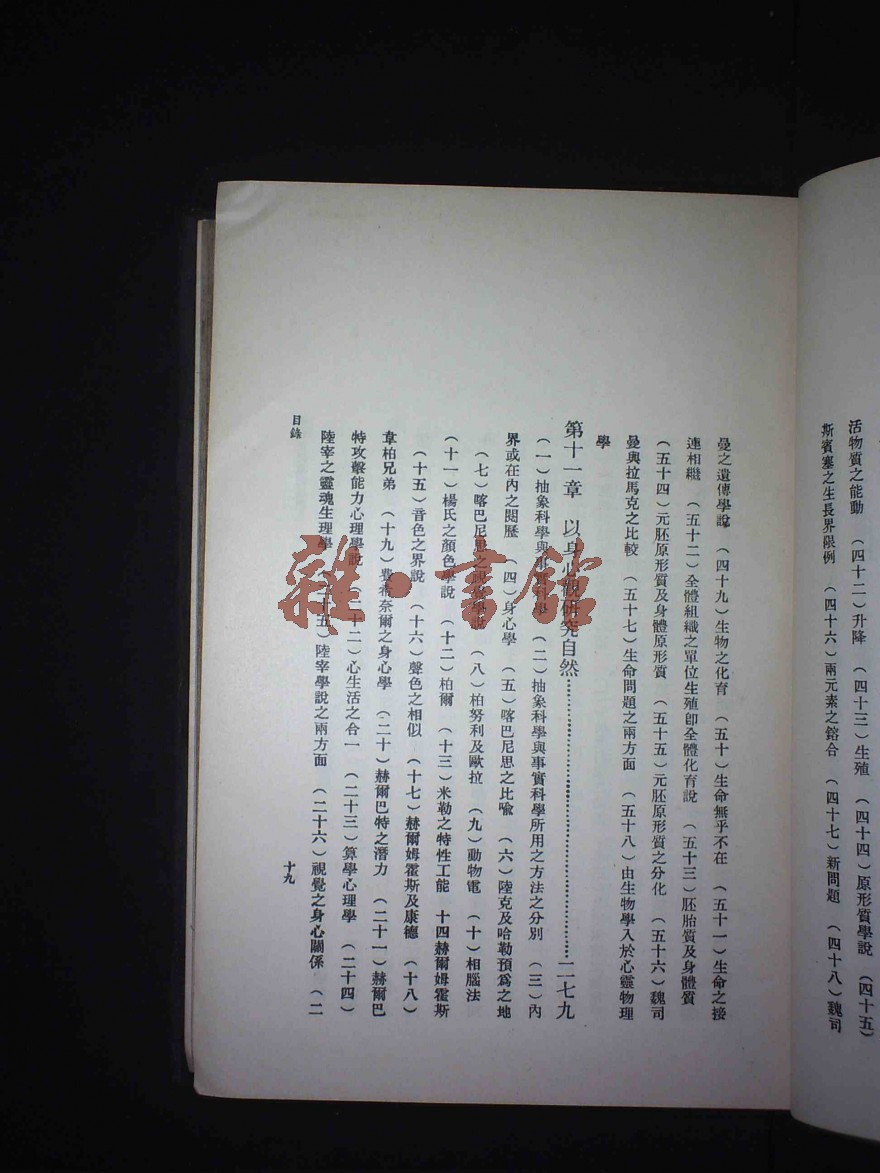 活物質之能動　（四十二）升降　（四十三）生殖　（四十四）原形質學說　（四十五）
斯賓塞之生長界限例　（四十六）兩元素之鎔合　（四十七）新問題　（四十八）魏司
曼之遺傳學說　（四十九）生物之化育　（五十）生命無乎不在　（五十一）生命之接
連相繼　（五十二）全體組織之單位生殖卽全體化育說　（五十三）胚胎質及身體質
（五十四）元胚原形質及身體原形質　（五十五）元胚原形質之分化　（五十六）魏司
曼與拉馬克之比較　（五十七）生命問題之兩方面　（五十八）由生物學入於心靈物理
學
第十一章　以身心觀研究自然…………二七九
（一）抽象科學與事實科學　（二）抽象科學與事實科學所用之方法之分別　（三）內
界或在內之閱歷　（四）身心學　（五）喀巴尼思之比喩　（六）陸克及哈勒預爲之地
（七）喀巴尼思之視覺學說　（八）柏努利及歐拉　（九）動物電　（十）相腦法
（十一）楊氏之顏色學說　（十二）柏爾　（十三）米勒之特性工能　十四赫爾姆霍斯
（十五）音色之界說　（十六）聲色之相似　（十七）赫爾姆霍斯及康德　（十八）
韋柏兄弟　（十九）費希奈爾之身心學　（二十）赫爾巴特之潛力　（二十一）赫爾巴
特攻擊能力心理學說　（二十二）心生活之合一　（二十三）算學心理學　（二十四）
陸宰之靈魂生理學　（二十五）陸宰學說之兩方面　（二十六）視覺之身心關係　（二
目錄
十九
雜·書館